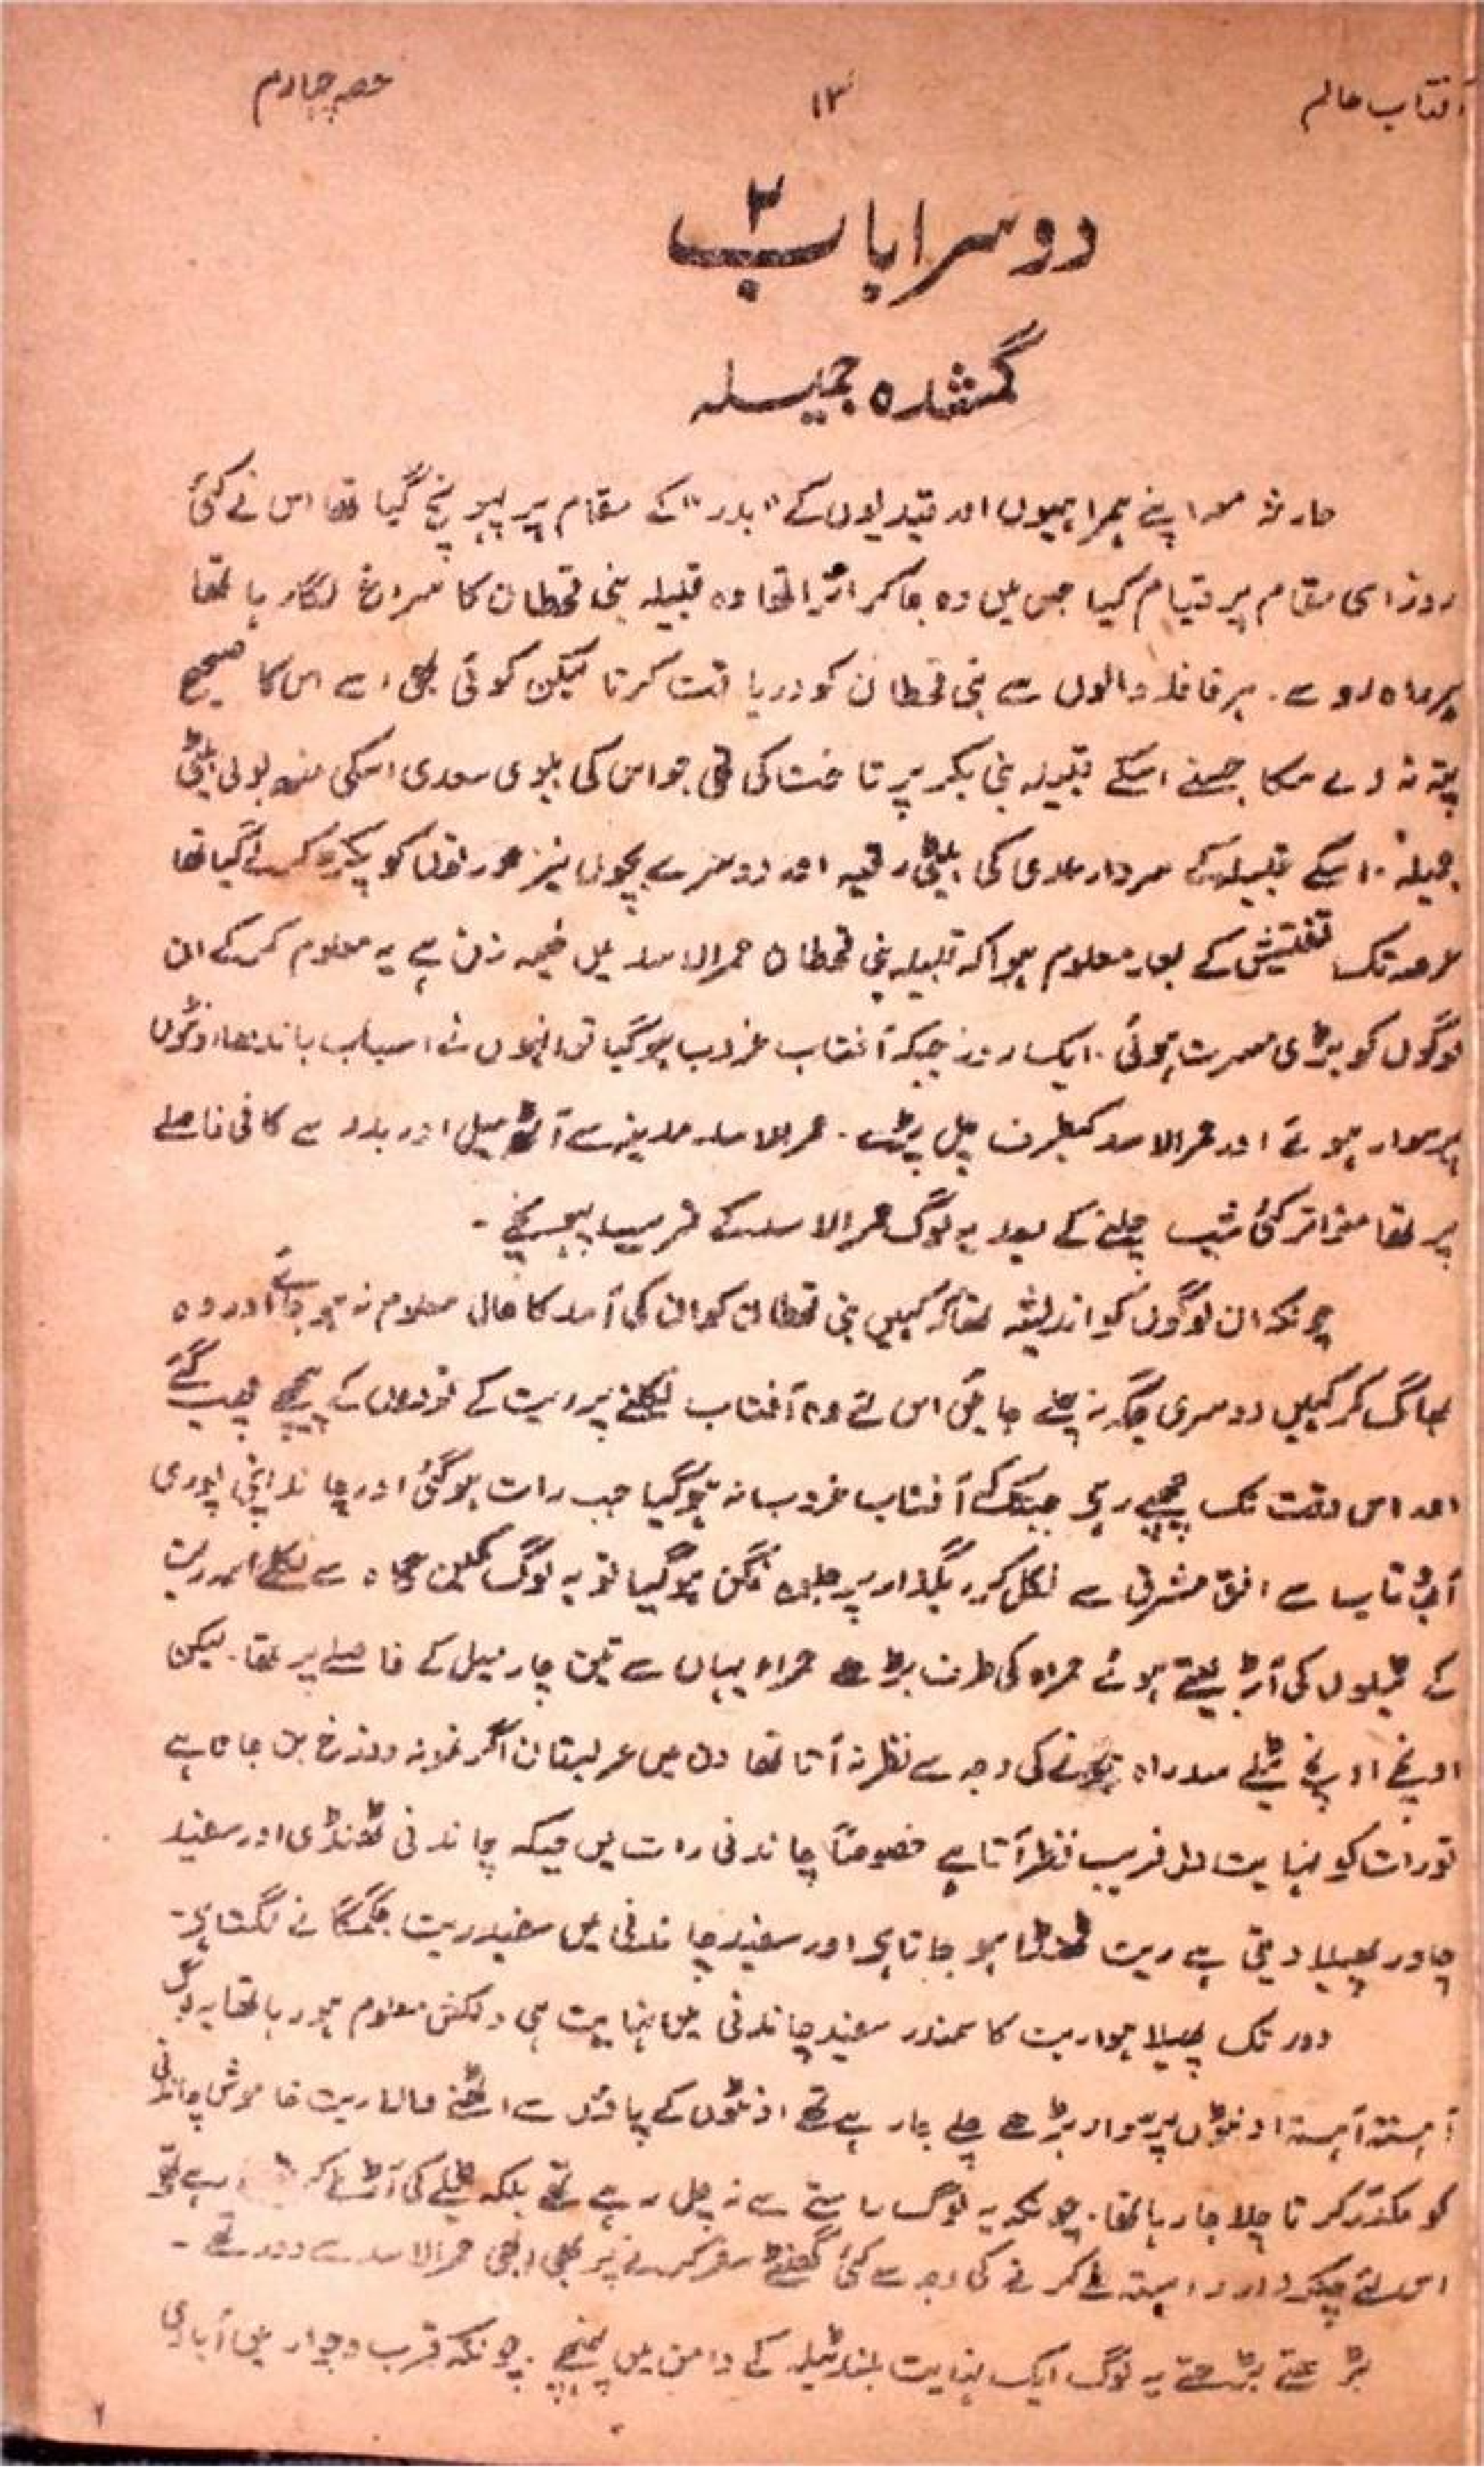 آفتاب عالم
۱۳
حصہ چہارم
دوسرا باب ۲
گمشدہ جمیلہ
حارثہ معہ اپنے ہمراہیوں اور قیدیوں کے "بدر" کے مقام پر پہونچ گیا تھا اس نے کئی
روز اسی مقام پر قیام کیا جس میں وہ جا کر اترا تھا وہ قبیلہ بنی قحطان کا سراغ لگا رہا تھا
ہر راہ رو سے۔ ہر قافلہ والوں سے بنی قحطان کو دریافت کرتا لیکن کوئی بھی اسے اس کا صحیح
پتہ نہ دے سکا جسنے اسکے قبیلہ بنی بکر پر تاخت کی تھی جو اس کی بیوی سعدی اسکی منھ بولی بیٹی
جمیلہ۔ اسکے قبیلہ کے سردار عدی کی بیٹی رقیہ اور دوسرے بچوں نیز عورتوں کو پکڑ کر لے گیا تھا
عرصہ تک تفتیش کے بعد معلوم ہوا کہ قبیلہ بنی قحطان حمرالاسد میں خیمہ زن ہے یہ معلوم کر کے ان
لوگوں کو بڑی مسرت ہوئی۔ ایک روز جبکہ آفتاب غروب ہو گیا تو انہوں نے اسباب باندھا اونٹوں
پر سوار ہوئے اور حمرالاسد کیطرف چل پڑے۔ حمرالاسد مدینہ سے آٹھ میل اور بدر سے کافی فاصلے
پر تھا متواتر کئی شب چلنے کے بعد یہ لوگ حمرالاسد کے قریب پہنچے۔
چونکہ ان لوگوں کو اندیشہ تھا کہ کہیں بنی قحطان کو ان کی آمد کا حال معلوم نہ ہو جائے اور وہ
بھاگ کر کہیں دوسری جگہ نہ چلے جائیں اس لئے وہ آفتاب نکلنے پر ریت کے تودوں کے پیچھے چھپ گئے
اور اس وقت تک چھپے رہے جبتک کہ آفتاب غروب نہ ہو گیا جب رات ہو گئی اور چاند اپنی پوری
آب و تاب سے افق مشرق سے نکل کر ریگزار پر جلوہ فگن ہو گیا تو یہ لوگ کمین گاہ سے نکلے اور ریت
کے ٹیلوں کی آڑ لیتے ہوئے حمراء کی طرف بڑھے حمراء یہاں سے تین چار میل کے فاصلے پر تھا۔ لیکن
اونچے اونچے ٹیلے سدراہ ہونے کی وجہ سے نظر نہ آتا تھا دن میں عربستان اگر نمونہ دوزخ بن جاتا ہے
تو رات کو نہایت دل فریب نظر آتا ہے خصوصاً چاندنی رات میں جبکہ چاندنی ٹھنڈی اور سفید
چادر پھیلا دیتی ہے ریت ٹھنڈا ہو جاتا ہے اور سفید چاندنی میں سفید ریت جگمگانے لگتا ہے۔
دور تک پھیلا ہوا ریت کا سمندر سفید چاندنی میں نہایت ہی دلکش معلوم ہو رہا تھا یہ لوگ
آہستہ آہستہ اونٹوں پر سوار بڑھے چلے جا رہے تھے اونٹوں کے پاؤں سے اٹھنے والا ریت خاموش چاندنی
کو مکدر کرتا چلا جا رہا تھا۔ چونکہ یہ لوگ راستے سے نہ چل رہے تھے بلکہ ٹیلے کی آڑ لے کر رہے تھے
اس لئے چکردار راستہ طے کرنے کی وجہ سے کئی گھنٹے سفر کرنے پر بھی ابھی حمرالاسد سے دور تھے۔
بڑھتے بڑھتے یہ لوگ ایک نہایت بلند ٹیلہ کے دامن میں پہنچے۔ چونکہ قرب و جوار میں آبادی
۲